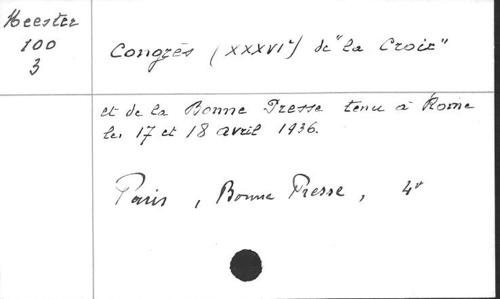 Heester
100
3
Congrès (XXXVIe) de "la Croix"
et de la Bonne Presse tenu à Rome
les 17 et 18 avril 1936.
Paris, Bonne Presse, 4°